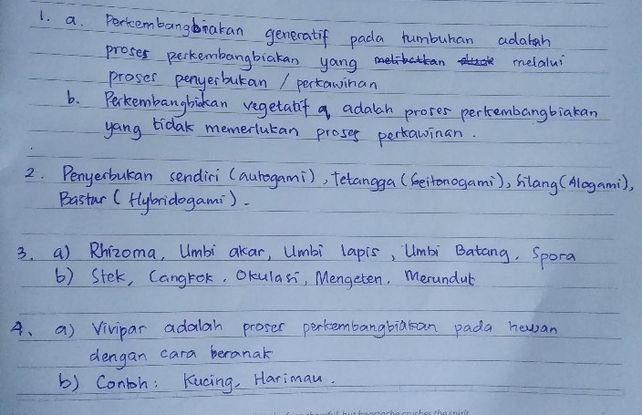 1. a. Perkembangbiakan generatif pada tumbuhan adalah
proses perkembangbiakan yang melibatkan melalui
proses penyerbukan / perkawinan
b. Perkembangbiakan vegetatif adalah proses perkembangbiakan
yang tidak memerlukan proses perkawinan.
2. Penyerbukan sendiri (autogami), Tetangga (Geitonogami), Silang (Alogami),
Bastar (Hybridogami).
3. a) Rhizoma, Umbi akar, Umbi lapis, Umbi Batang, Spora
b) Stek, Cangkok, Okulasi, Mengeten, Merunduk
4. a) Vivipar adalah proses perkembangbiakan pada hewan
dengan cara beranak
b) Contoh: Kucing, Harimau.
but heartache crushes the spirit